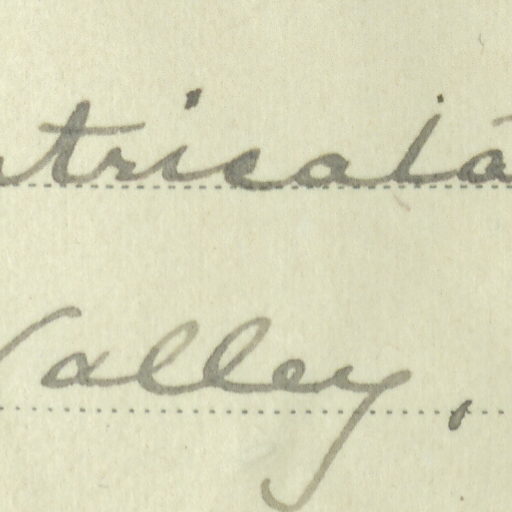 tricala
Valley,